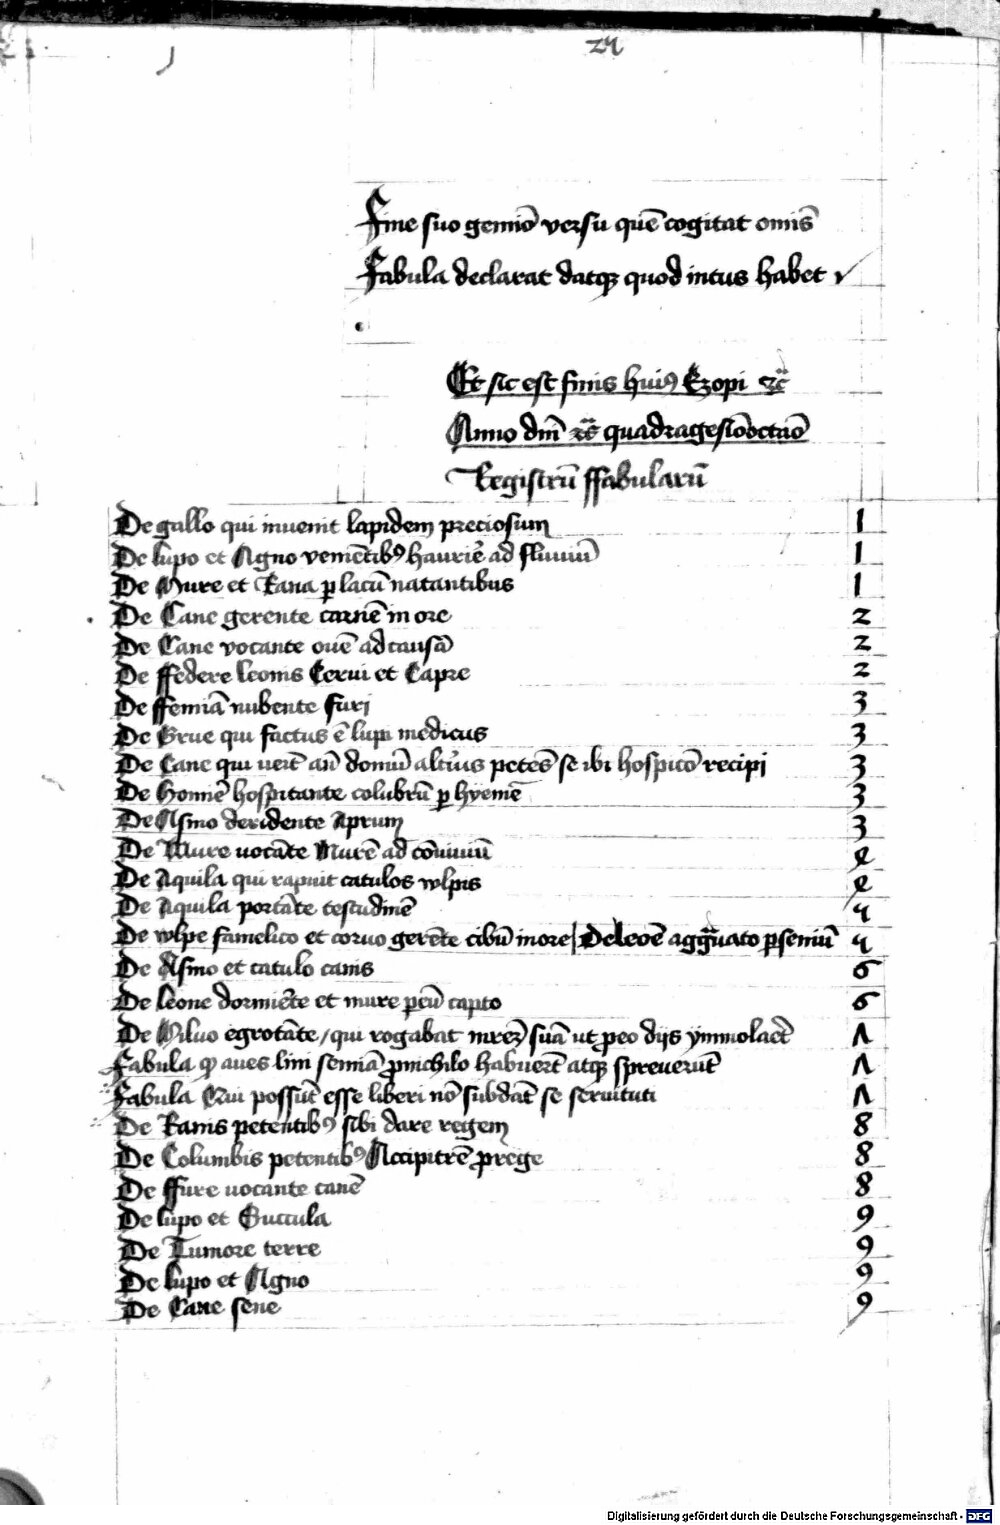 24
Fine suo gemiō versu quē cogitat omīs
Fabula declarat datqꝫ quod intus habet
Et sic est finis huiꝰ Ezopi ⁊c̄
Anno dnī ⁊c̄ quadragesīooctāo
Registrū ffabularū
De gallo qui invenit lapidem preciosum 1
De lupo et Agno venientibꝰ haurīe ad fluuiū 1
De Mure et Rana ꝑ lacū natantibus 1
De Cane gerente carnē in ore 2
De Cane vocante ouē ad causā 2
De ffedere leonis Cerui et Capre 2
De ffemiā nubente furi 3
De Grue qui factus ē lupi medicus 3
De Cane qui uēit añ domū altīus petēs se ibi hospicō recipi 3
De homīe hospitante colubrū ꝑ hyemē 3
De Asino deridente Aprum 3
De Mure uocāte Murē ad cōuiuiū 4
De Aquila qui rapuit catulos wlpis 4
De Aquila portāte testudinē 5
De wlpe famelico et coruo gerēte cibū in ore De leoē aggͣuato ꝑ seniū 5
De Asino et catulo canis 6
De leone dormiēte et mure ꝑ eū capto 6
De Miluo egrotāte qui rogabat mrēꝫ suā ut ꝓ eo diis ymmolaēt 7
Fabula ꝙ aues lini semiā ꝓ nichilo habuerūt atqꝫ spreuerūt 7
Fabula Qui possūt esse liberi nō subdāt se seruituti 7
De Ranis petentibꝰ sibi dare regem 8
De Columbis petentibꝰ Accipitrē ꝓ rege 8
De ffure uocante canē 8
De lupo et Succula 9
De Tumore terre 9
De lupo et Agno 9
De Cane sene 9
Digitalisierung gefördert durch die Deutsche Forschungsgemeinschaft - DFG